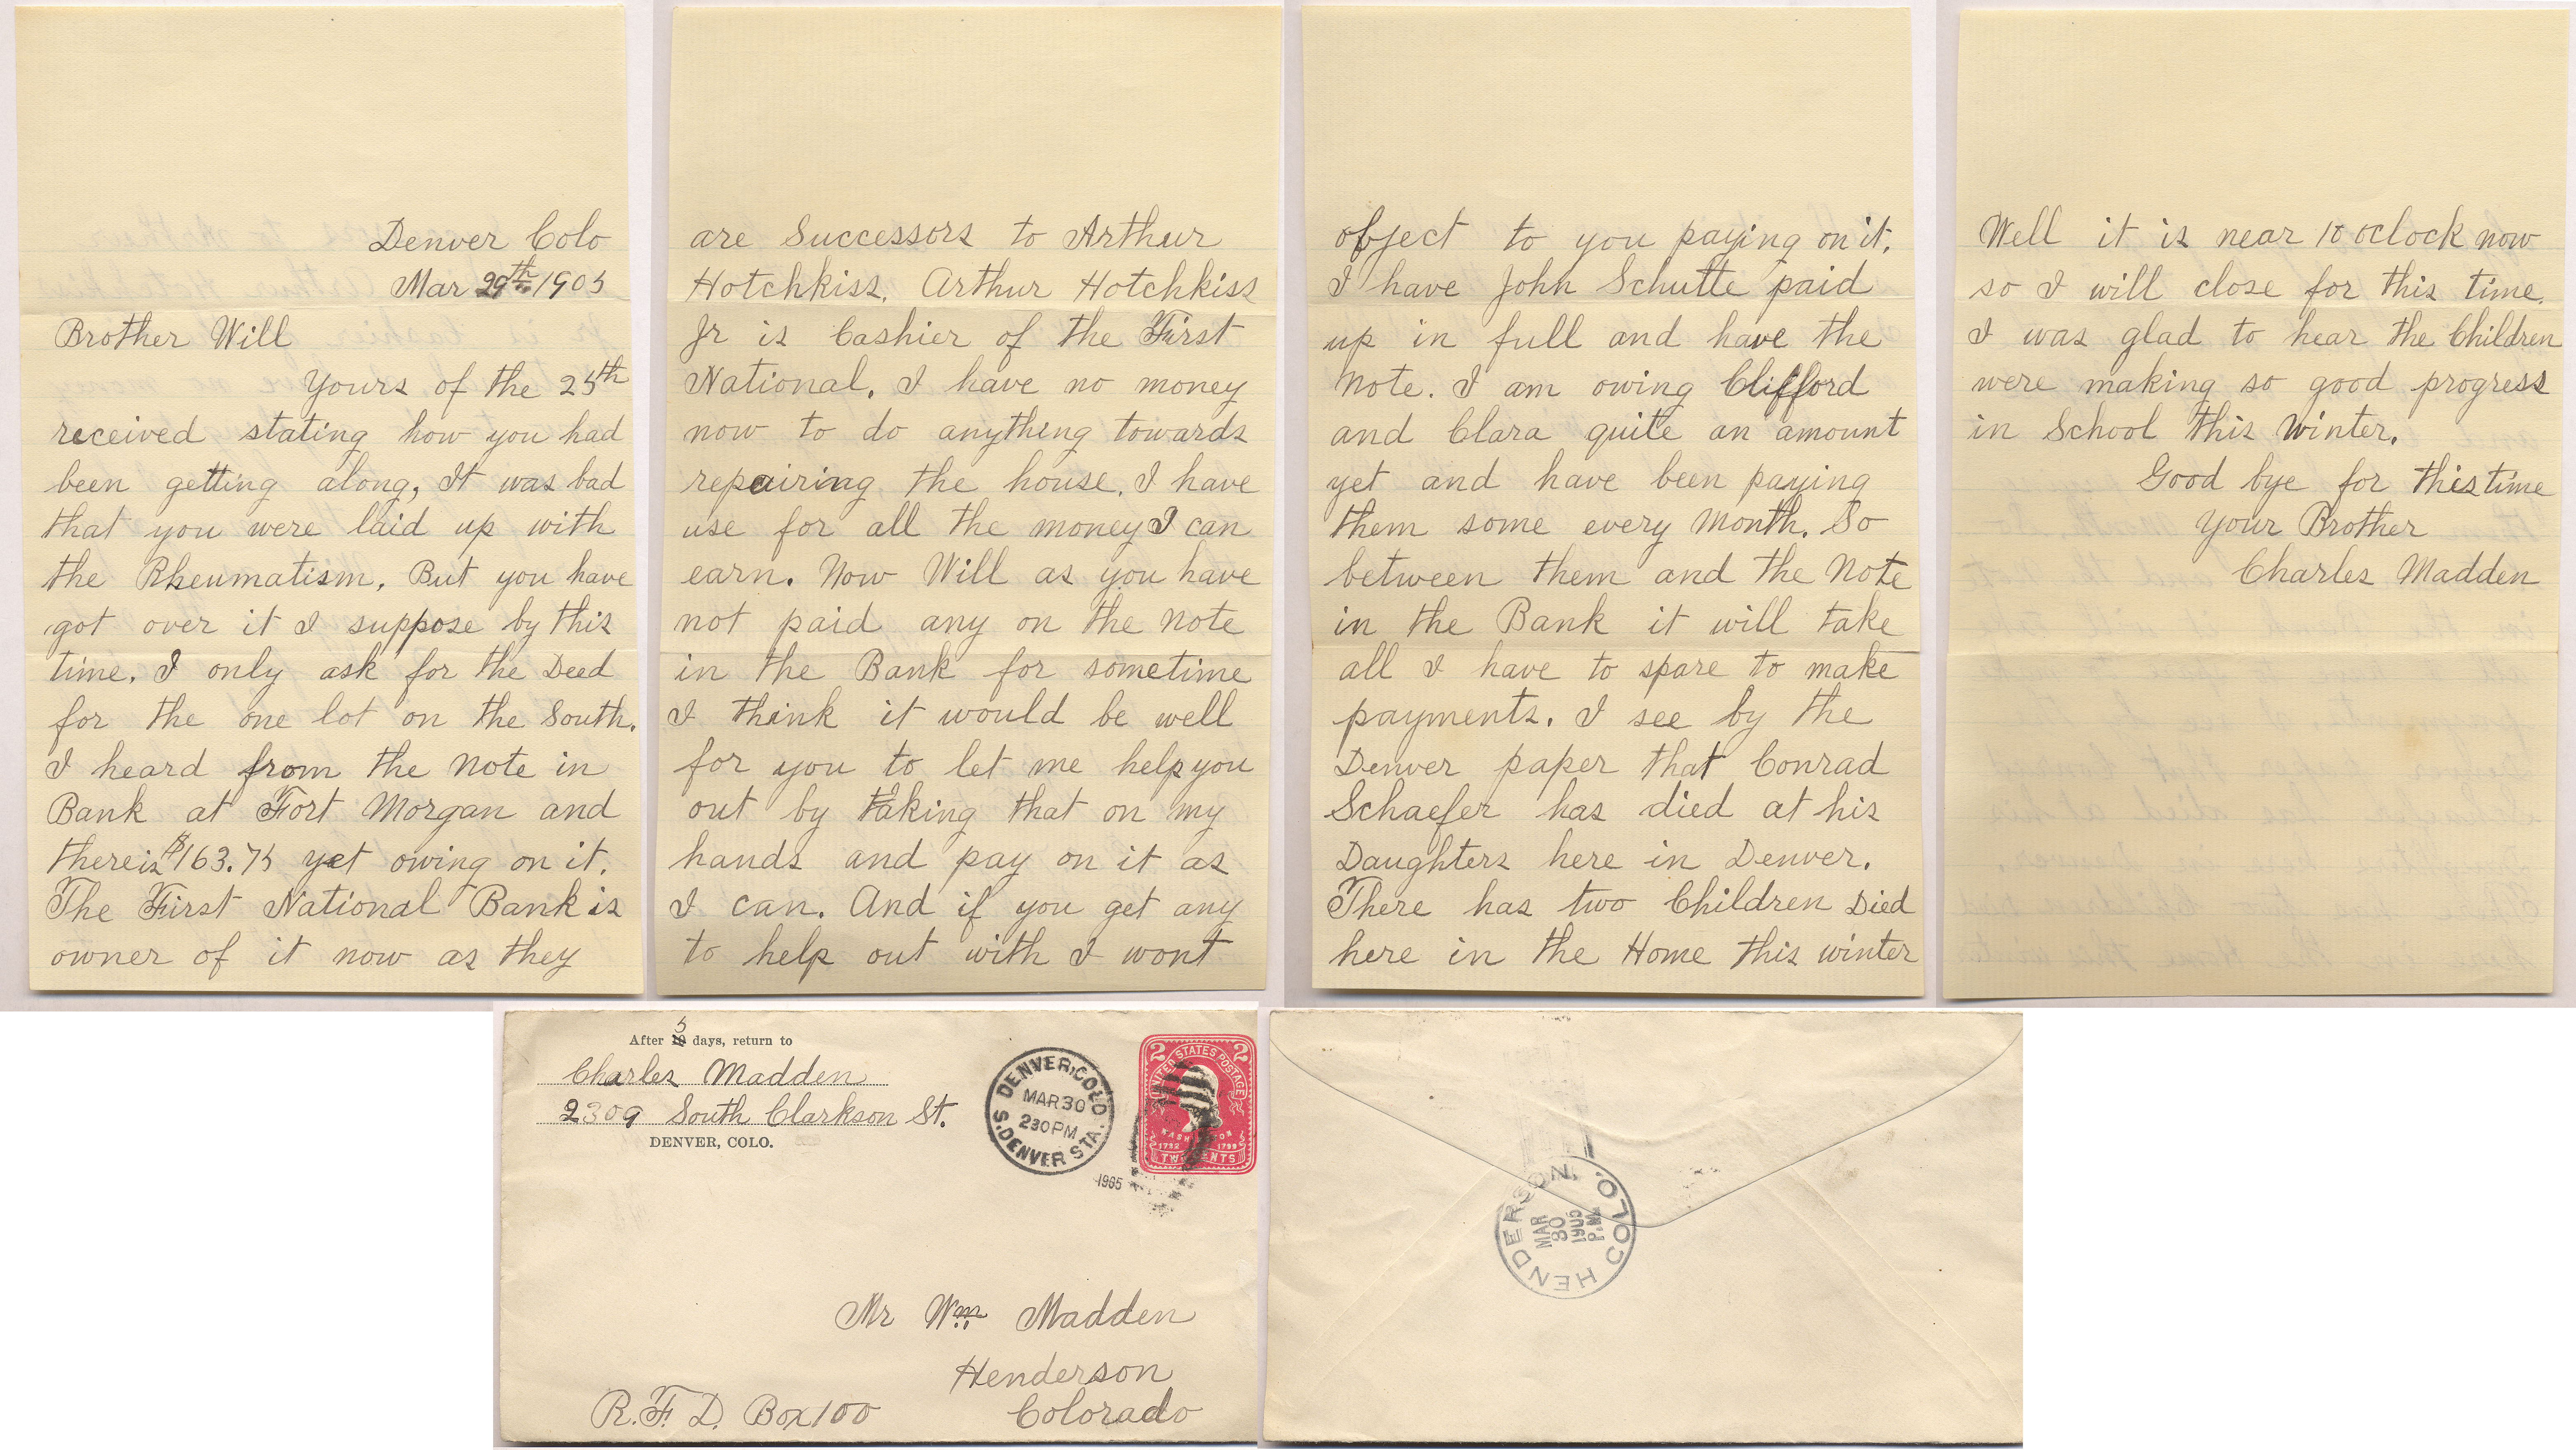 Denver Colo
Mar 29th 1905
Brother Will
Yours of the 25th
received stating how you had
been getting along, It was bad
that you were laid up with
the Rheumatism. But you have
got over it I suppose by this
time. I only ask for the Deed
for the one lot on the South.
I heard from the Note in
Bank at Fort Morgan and
there is $163.75 yet owing on it.
The First National Bank is
owner of it now as they
are Successors to Arthur
Hotchkiss. Arthur Hotchkiss
Jr is Cashier of the First
National. I have no money
now to do anything towards
repairing the house. I have
use for all the money I can
earn. Now Will as you have
not paid any on the Note
in the Bank for sometime
I think it would be well
for you to let me help you
out by taking that on my
hands and pay on it as
I can. And if you get any
to help out with I wont
object to you paying on it.
I have John Schutte paid
up in full and have the
Note. I am owing Clifford
and Clara quite an amount
yet and have been paying
them some every Month. So
between them and the Note
in the Bank it will take
all I have to spare to make
payments. I see by the
Denver paper that Conrad
Schaefer has died at his
Daughters here in Denver.
There has two Children Died
here in the Home this winter
Well it is near 10 oclock now
so I will close for this time.
I was glad to hear the Children
were making so good progress
in School this Winter.
Good bye for this time
Your Brother
Charles Madden
5
After 10 days, return to
Charles Madden
2309 South Clarkson St.
DENVER, COLO.
DENVER, COLO
MAR 30
230 PM
S. DENVER STA.
1905
2 UNITED STATES POSTAGE 2
WASHINGTON
1732 1799
TWO CENTS
Mr Wm Madden
Henderson
R.F.D. Box 100 Colorado
HENDERSON, COLO.
MAR
30
1905
P.M.